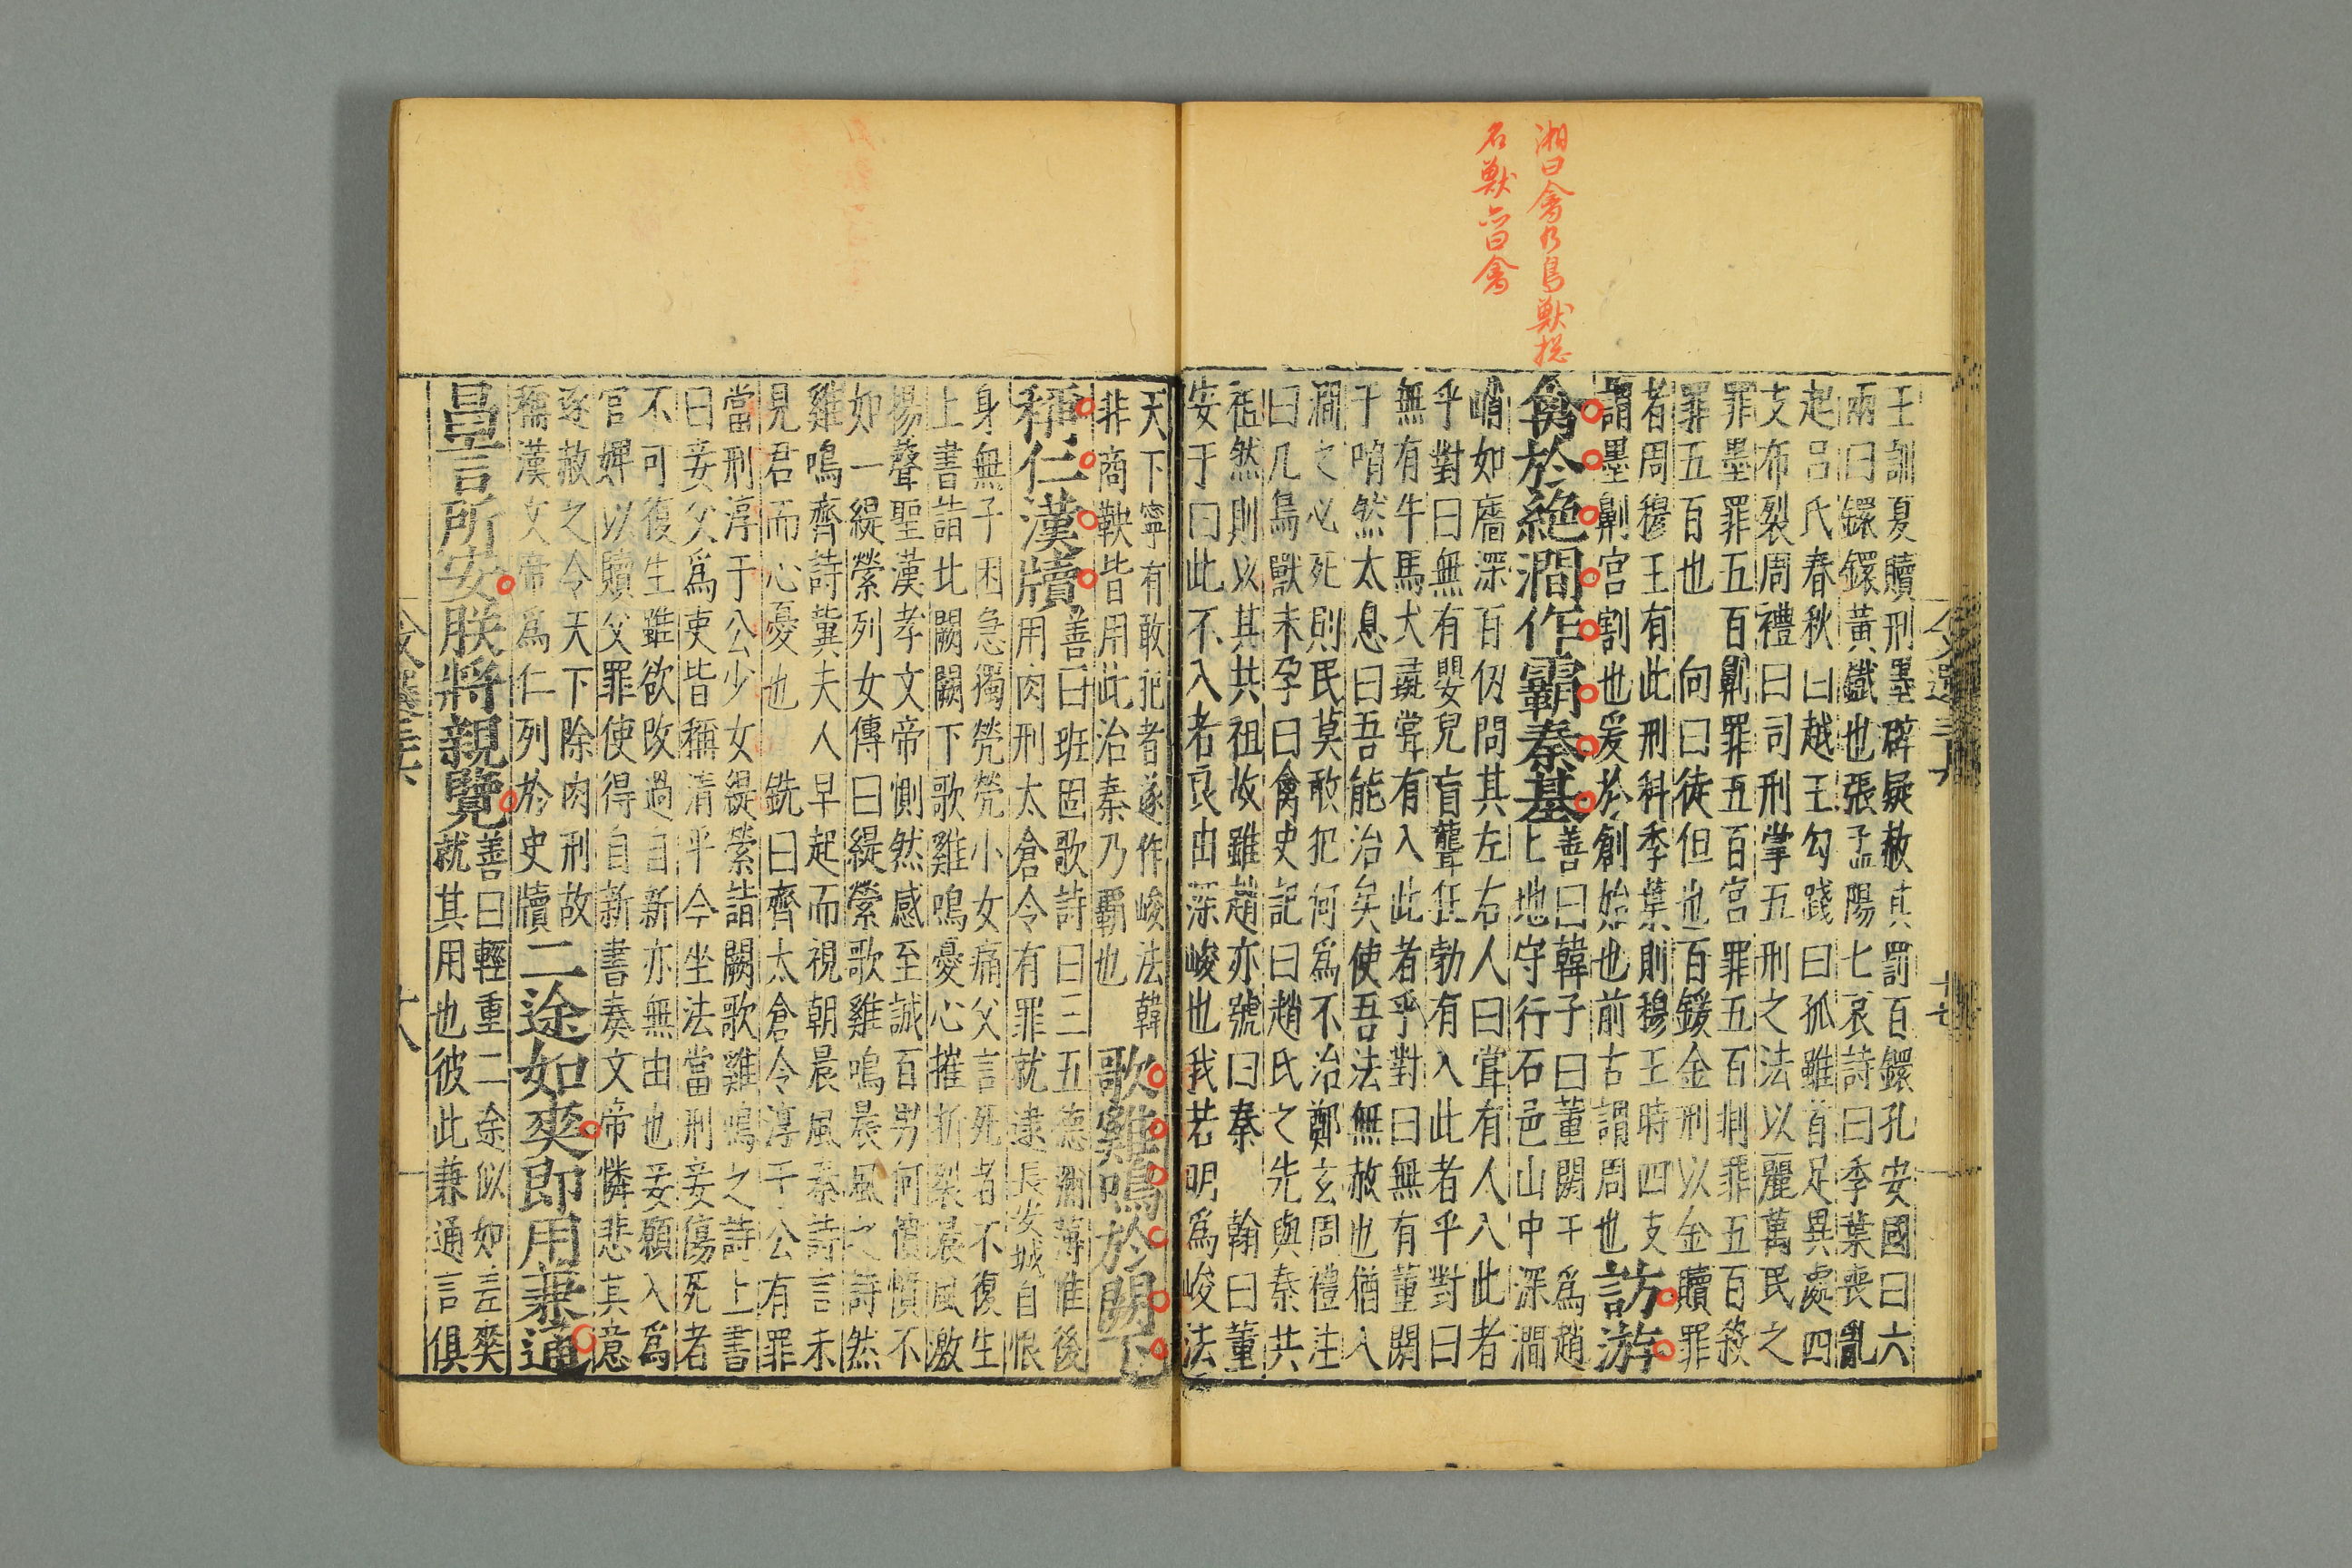 湘曰禽乃鳥獸揔
名獸亦曰禽
十七
王訓夏贖刑墨辟疑赦其罰百鍰孔安國曰六
兩曰鍰鍰黃鐵也張孟陽七哀詩曰季葉喪亂
起呂氏春秋曰越王勾踐曰孤雖首足異處四
支布裂周禮曰司刑掌五刑之法以麗萬民之
罪墨罪五百劓罪五百宮罪五百刖罪五百殺
罪五百也 向曰徒但也百鍰金刑以金贖罪
者周穆王有此刑科季葉則穆王時四支
謂墨劓宮割也爰於創始也前古謂周也 訪游
禽於絕澗作霸秦基 善曰韓子曰董閼于爲趙
上地守行石邑山中深澗
峭如牆深百仞問其左右人曰嘗有人入此者
乎對曰無有嬰兒盲聾狂勃有入此者乎對曰
無有牛馬犬彘嘗有入此者乎對曰無有董閼
于喟然太息曰吾能治矣使吾法無赦也猶入
澗之必死則民莫敢犯何爲不治鄭玄周禮注
曰凡鳥獸未孕曰禽史記曰趙氏之先與秦共
祖然則以其共祖故雖趙亦號曰秦 翰曰董
安于曰此不入者良由深峻也我若明爲峻法
天下寧有敢犯者遂作峻法韓
非商鞅皆用此治秦乃霸也 歌雞鳴於闕下
稱仁漢牘 善曰班固歌詩曰三五德彌薄惟後
用肉刑太倉令有罪就逮長安城自恨
身無子困急獨煢煢小女痛父言死者不復生
上書詣北闕闕下歌雞鳴憂心摧折裂晨風激
揚聲聖漢孝文帝惻然感至誠百男何憒憒不
如一緹縈列女傳曰緹縈歌雞鳴晨風之詩然
雞鳴齊詩冀夫人早起而視朝晨風秦詩言未
見君而心憂也 銑曰齊太倉令淳于公有罪
當刑淳于公少女緹縈詣闕歌雞鳴之詩上書
曰妾父爲吏皆稱清平今坐法當刑妾傷死者
不可復生雖欲改過自新亦無由也妾願入爲
官婢以贖父罪使得自新書奏文帝憐悲其意
遂赦之令天下除肉刑故
稱漢文帝爲仁列於史牘 二途如爽即用兼通
昌言所安朕將親覽 善曰輕重二途似如差爽
就其用也彼此兼通言俱